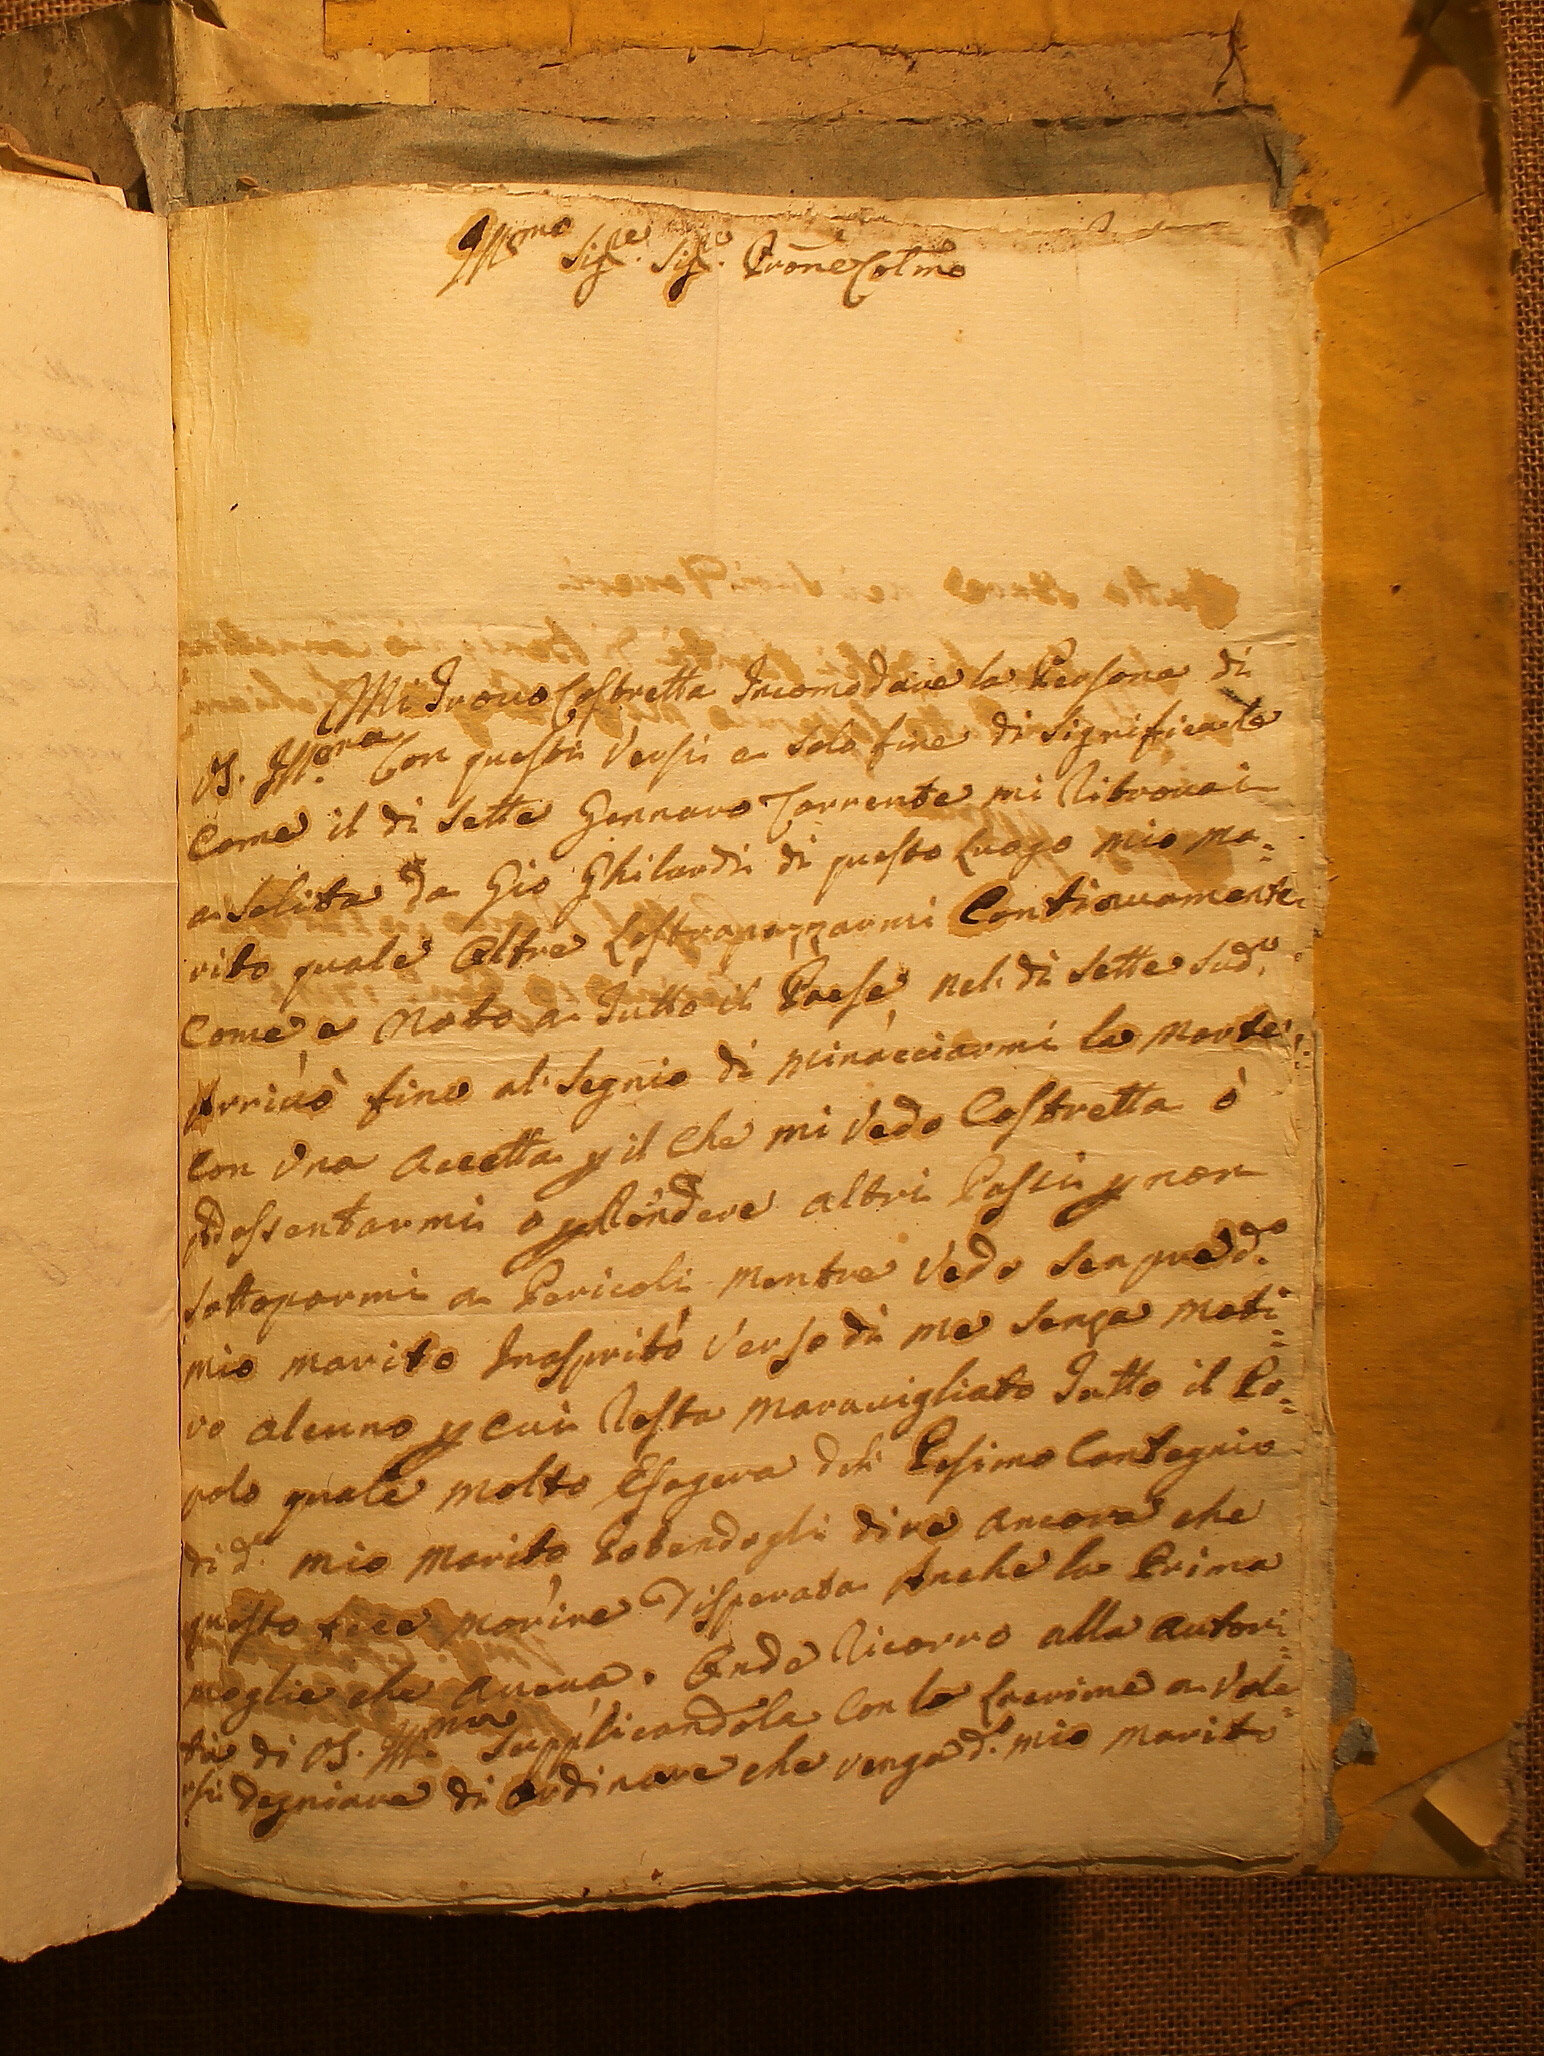 Illmo Sigre Sigre Prone Colmo
Mi Trovo Costretta Incomodare la Persona di
VS. Illma Con questi Versi a solo fine di significarle
Come il di Sette Gennaro Corrente mi Ritrovai
asalita da Gio Ghilardi di questo Luogo mio ma=
rito quale Oltre Lostrapazzarmi Continuamente
Come è Noto a Tutto il Paese, nel di Sette Sudo
Arrivò fino al Segnio di minacciarmi la morte
con una Accetta p il che mi Vedo Costretta ò
Adossentarmi o p Rendere altri Passi p non
sottopormi a Pericoli mentre Vedo Senpre do
mio marito Inaspritò Verso di me senza moti=
vo alcuno p cui Resta maravigliato Tutto il Po=
polo quale molto Esagera del Pesimo Contegnio
di do mio Marito Potendogli dire ancora che
questo fece morire Disperata Anche la Prima
moglie che aveva. Onde Ricorro alla autori=
tà di VS. Illma Supplicandola Con le Lacrime a Vole=
rsi degniare di ordinare che venga do mio marito